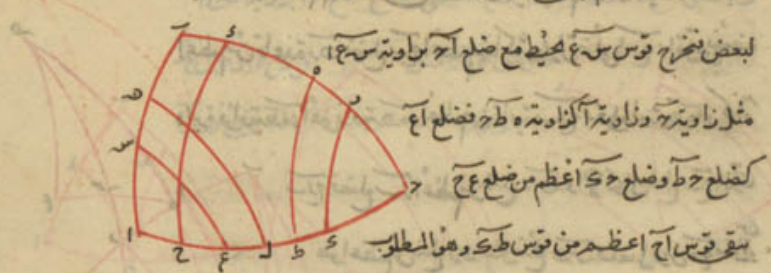 لبعض فنخرج قوس س ع يحيط مع ضلع آح بزاوية س ع ا
مثل زاوية ح وزاوية آ كزاوية ه ط ح فضلع اع
كضلع ح ط وضلع ح ك اعظم من ضلع ع ح
يبقى قوس آح اعظم من قوس ط ك وهو المطلوب